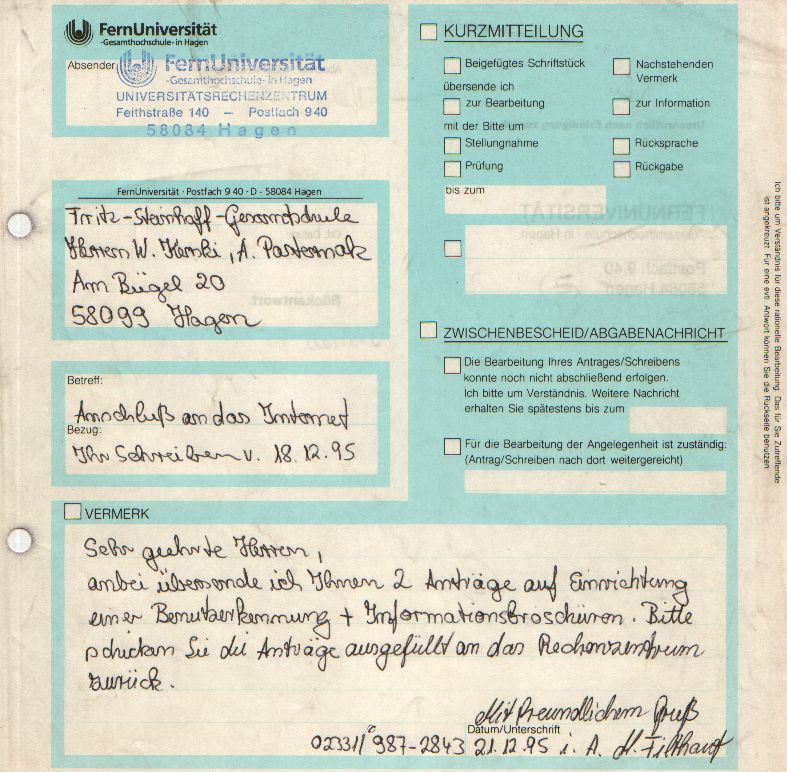 FernUniversität
-Gesamthochschule- in Hagen
Absender
FernUniversität
-Gesamthochschule- in Hagen
UNIVERSITÄTSRECHENZENTRUM
Feithstraße 140 — Postfach 940
58084 Hagen
FernUniversität · Postfach 9 40 · D - 58084 Hagen
Fritz-Steinhoff-Gesamtschule
Herrn W. Kerski, A. Pasternak
Am Bügel 20
58099 Hagen
Betreff:
Anschluß an das Internet
Bezug:
Ihr Schreiben v. 18.12.95
KURZMITTEILUNG
Beigefügtes Schriftstück
Nachstehenden
Vermerk
übersende ich
zur Bearbeitung
zur Information
mit der Bitte um
Stellungnahme
Rücksprache
Prüfung
Rückgabe
bis zum
ZWISCHENBESCHEID/ABGABENACHRICHT
Die Bearbeitung Ihres Antrages/Schreibens
konnte noch nicht abschließend erfolgen.
Ich bitte um Verständnis. Weitere Nachricht
erhalten Sie spätestens bis zum
Für die Bearbeitung der Angelegenheit ist zuständig:
(Antrag/Schreiben nach dort weitergereicht)
Ich bitte um Verständnis für diese rationelle Bearbeitung. Das für Sie Zutreffende
ist angekreuzt. Für eine evtl. Antwort können Sie die Rückseite benutzen.
VERMERK
Sehr geehrte Herren,
anbei übersende ich Ihnen 2 Anträge auf Einrichtung
einer Benutzerkennung + Informationsbroschüren. Bitte
schicken Sie die Anträge ausgefüllt an das Rechenzentrum
zurück.
Mit freundlichem Gruß
Datum/Unterschrift
02331/987-2843 21.12.95 i. A.